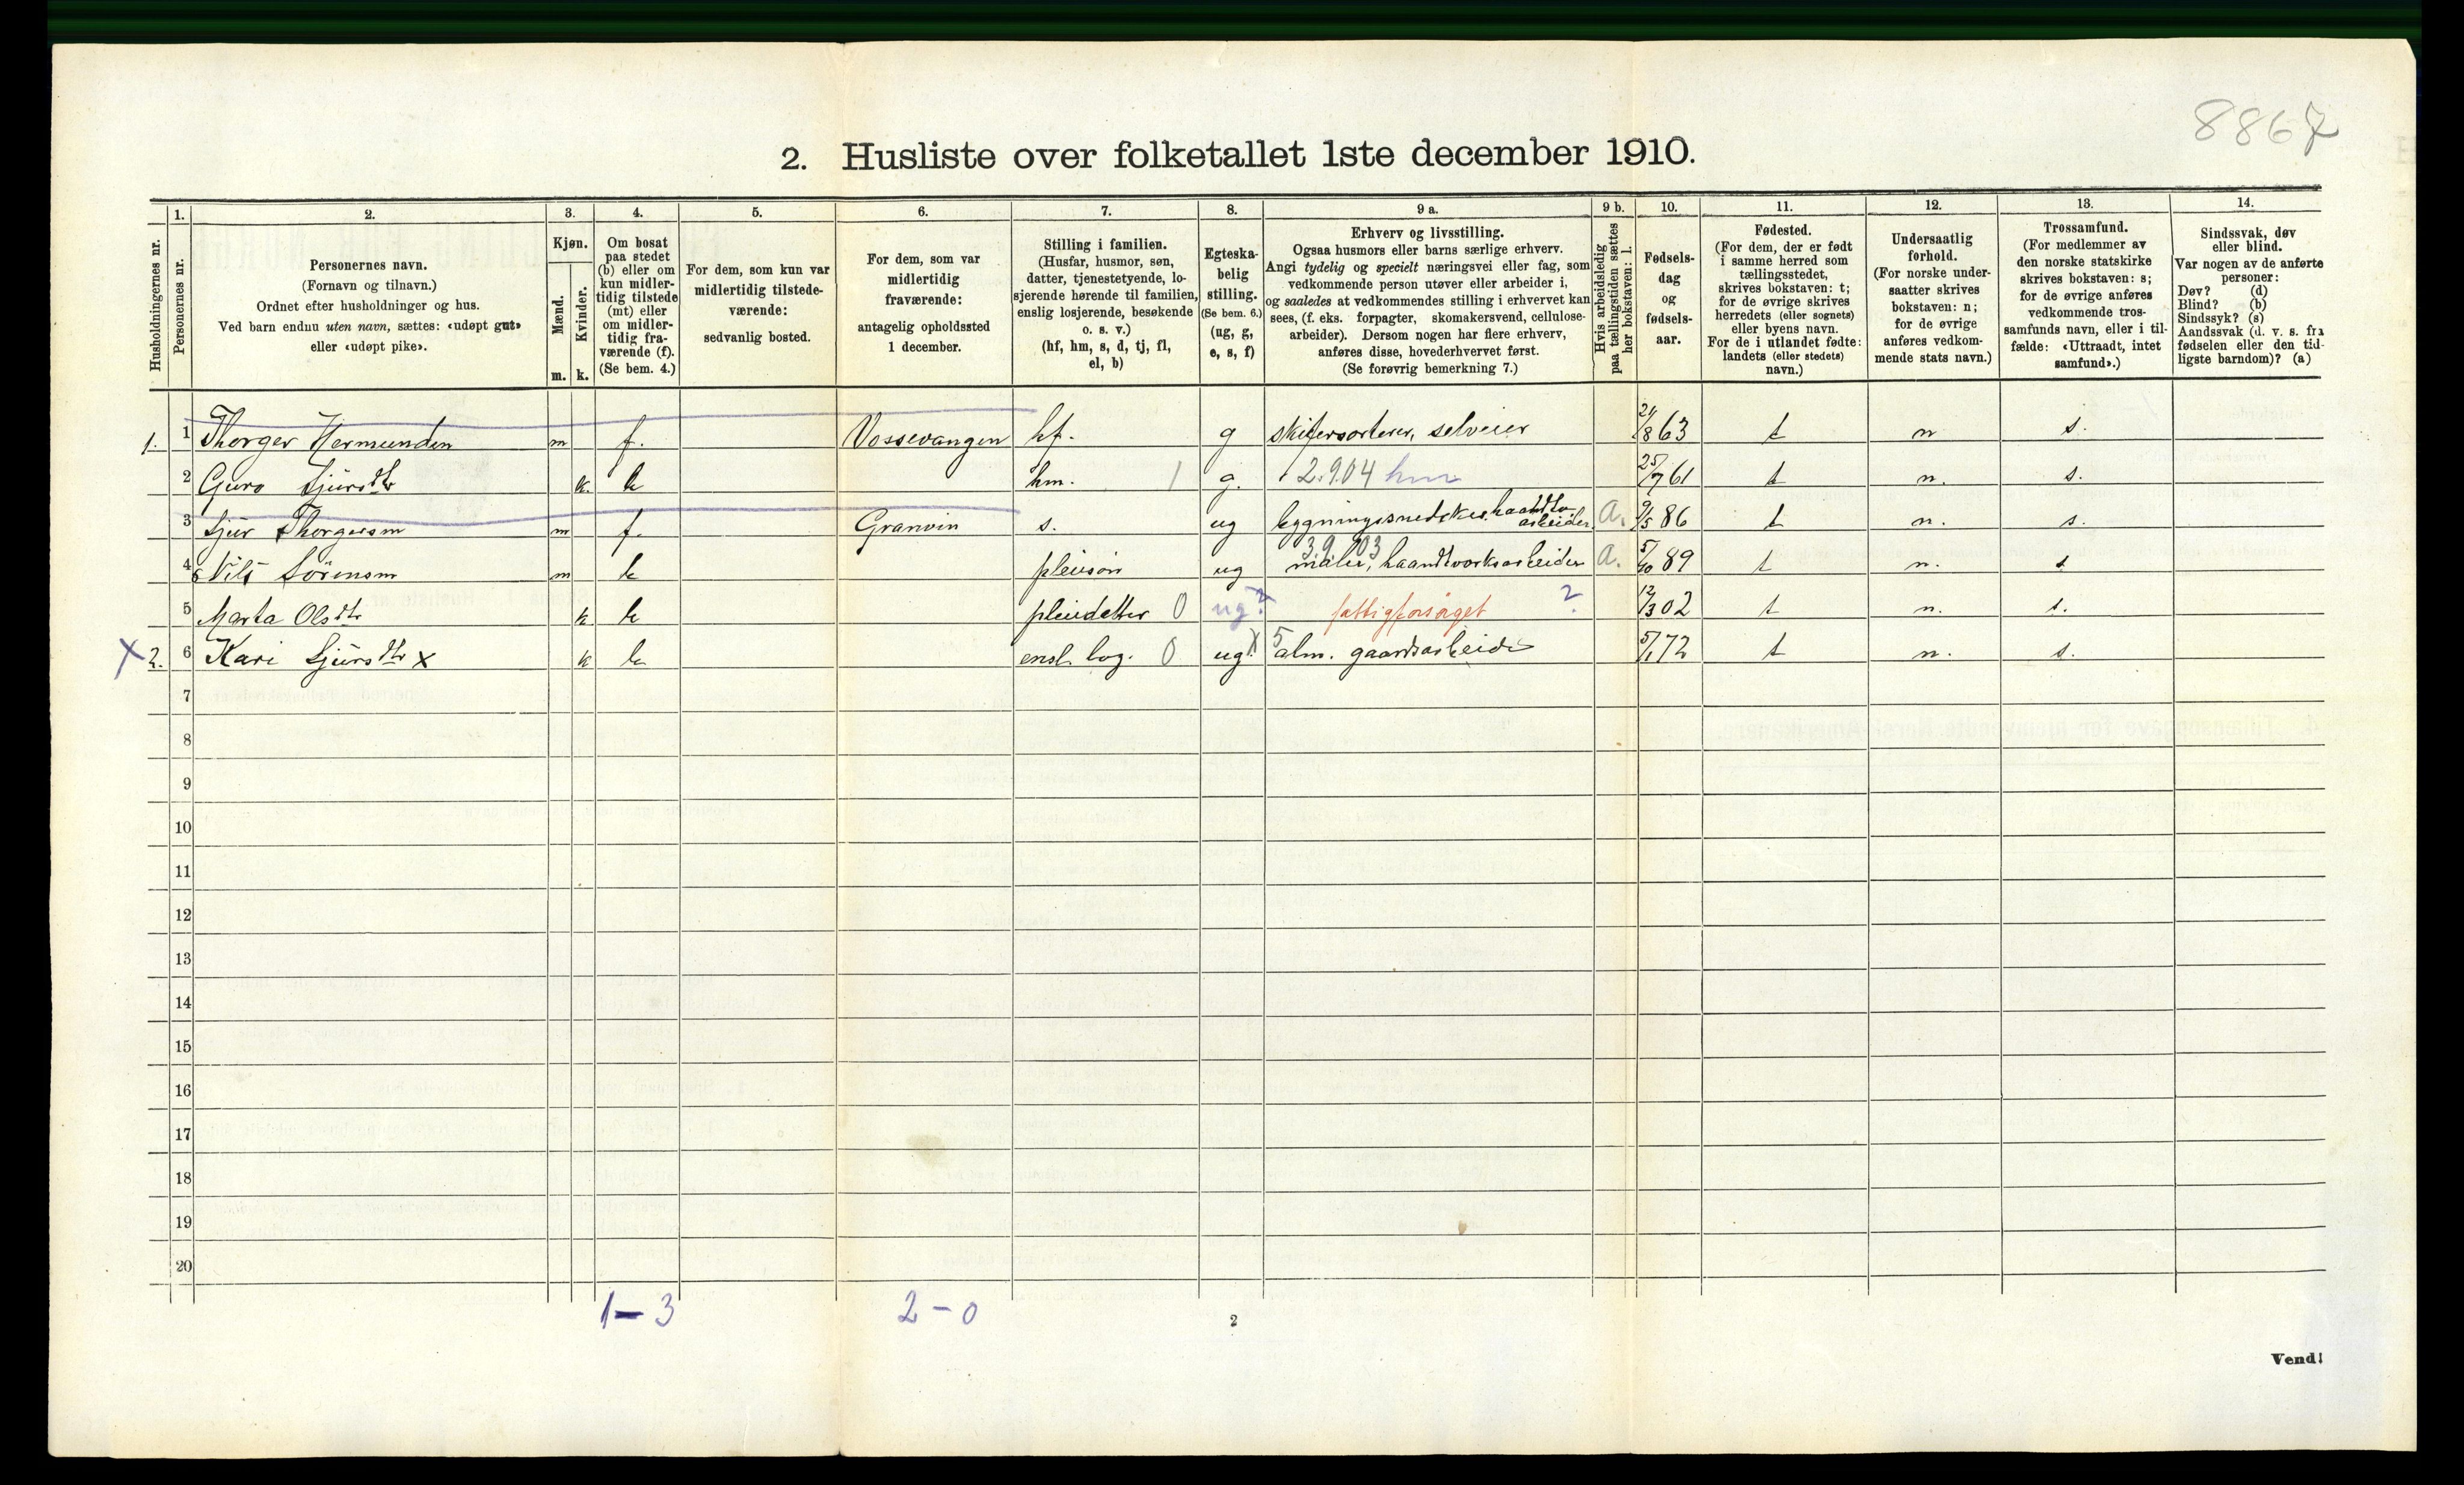 8867
2. Husliste over folketallet 1ste december 1910.
1. 2. 3. 4. 5. 6. 7. 8. 9 a. 9 b. 10. 11. 12. 13. 14.
Husholdningernes nr.
Personernes nr.
Personernes navn.
(Fornavn og tilnavn.)
Ordnet efter husholdninger og hus.
Ved barn endnu uten navn, sættes: «udøpt gut»
eller «udøpt pike».
Kjøn.
Mænd.
Kvinder.
m. k.
Om bosat
paa stedet
(b) eller om
kun midler-
tidig tilstede
(mt) eller
om midler-
tidig fra-
værende (f).
(Se bem. 4.)
For dem, som kun var
midlertidig tilstede-
værende:
sedvanlig bosted.
For dem, som var
midlertidig
fraværende:
antagelig opholdssted
1 december.
Stilling i familien.
(Husfar, husmor, søn,
datter, tjenestetyende, lo-
sjerende hørende til familien,
enslig losjerende, besøkende
o. s. v.)
(hf, hm, s, d, tj, fl,
el, b)
Egteska-
belig
stilling.
(Se bem. 6.)
(ug, g,
e, s, f)
Erhverv og livsstilling.
Ogsaa husmors eller barns særlige erhverv.
Angi tydelig og specielt næringsvei eller fag, som
vedkommende person utøver eller arbeider i,
og saaledes at vedkommendes stilling i erhvervet kan
sees, (f. eks. forpagter, skomakersvend, cellulose-
arbeider). Dersom nogen har flere erhverv,
anføres disse, hovederhvervet først.
(Se forøvrig bemerkning 7.)
Hvis arbeidsledig
paa tællingstiden sættes
her bokstaven: l.
Fødsels-
dag
og
fødsels-
aar.
Fødested.
(For dem, der er født
i samme herred som
tællingsstedet,
skrives bokstaven: t;
for de øvrige skrives
herredets (eller sognets)
eller byens navn.
For de i utlandet fødte:
landets (eller stedets)
navn.)
Undersaatlig
forhold.
(For norske under-
saatter skrives
bokstaven: n;
for de øvrige
anføres vedkom-
mende stats navn.)
Trossamfund.
(For medlemmer av
den norske statskirke
skrives bokstaven: s;
for de øvrige anføres
vedkommende tros-
samfunds navn, eller i til-
fælde: «Uttraadt, intet
samfund».)
Sindssvak, døv
eller blind.
Var nogen av de anførte
personer:
Døv? (d)
Blind? (b)
Sindssyk? (s)
Aandssvak (d. v. s. fra
fødselen eller den tid-
ligste barndom)? (a)
1. 1 Thorger Hermunden m f. Vossevangen hf. g skifersorterer, selveier 21/8 63 t n s.
2 Guro Sjursdtr k. b hm. 1 g. 2.9.04 hm 25/7 61 t n. s.
3 Sjur Thorgersn m f. Granvin s. ug bygningssnedker, haandv. arbeider. a. 9/5 86 t n. s.
4 Nils Sörensn m b pleiesön ug 3.9.03 maler, haandverksarbeider a. 5/10 89 t n. s
5 Marta Olsdtr k b pleiedatter 0 ug? fattigforsörget ? 12/3 02 t n. s.
X 2. 6 Kari Sjursdtr x k b ensl. log. 0 ug. X 5 alm. gaardsarbeide 5/1 72 t n. s.
7
8
9
10
11
12
13
14
15
16
17
18
19
20
1-3 2-0
2
Vend!